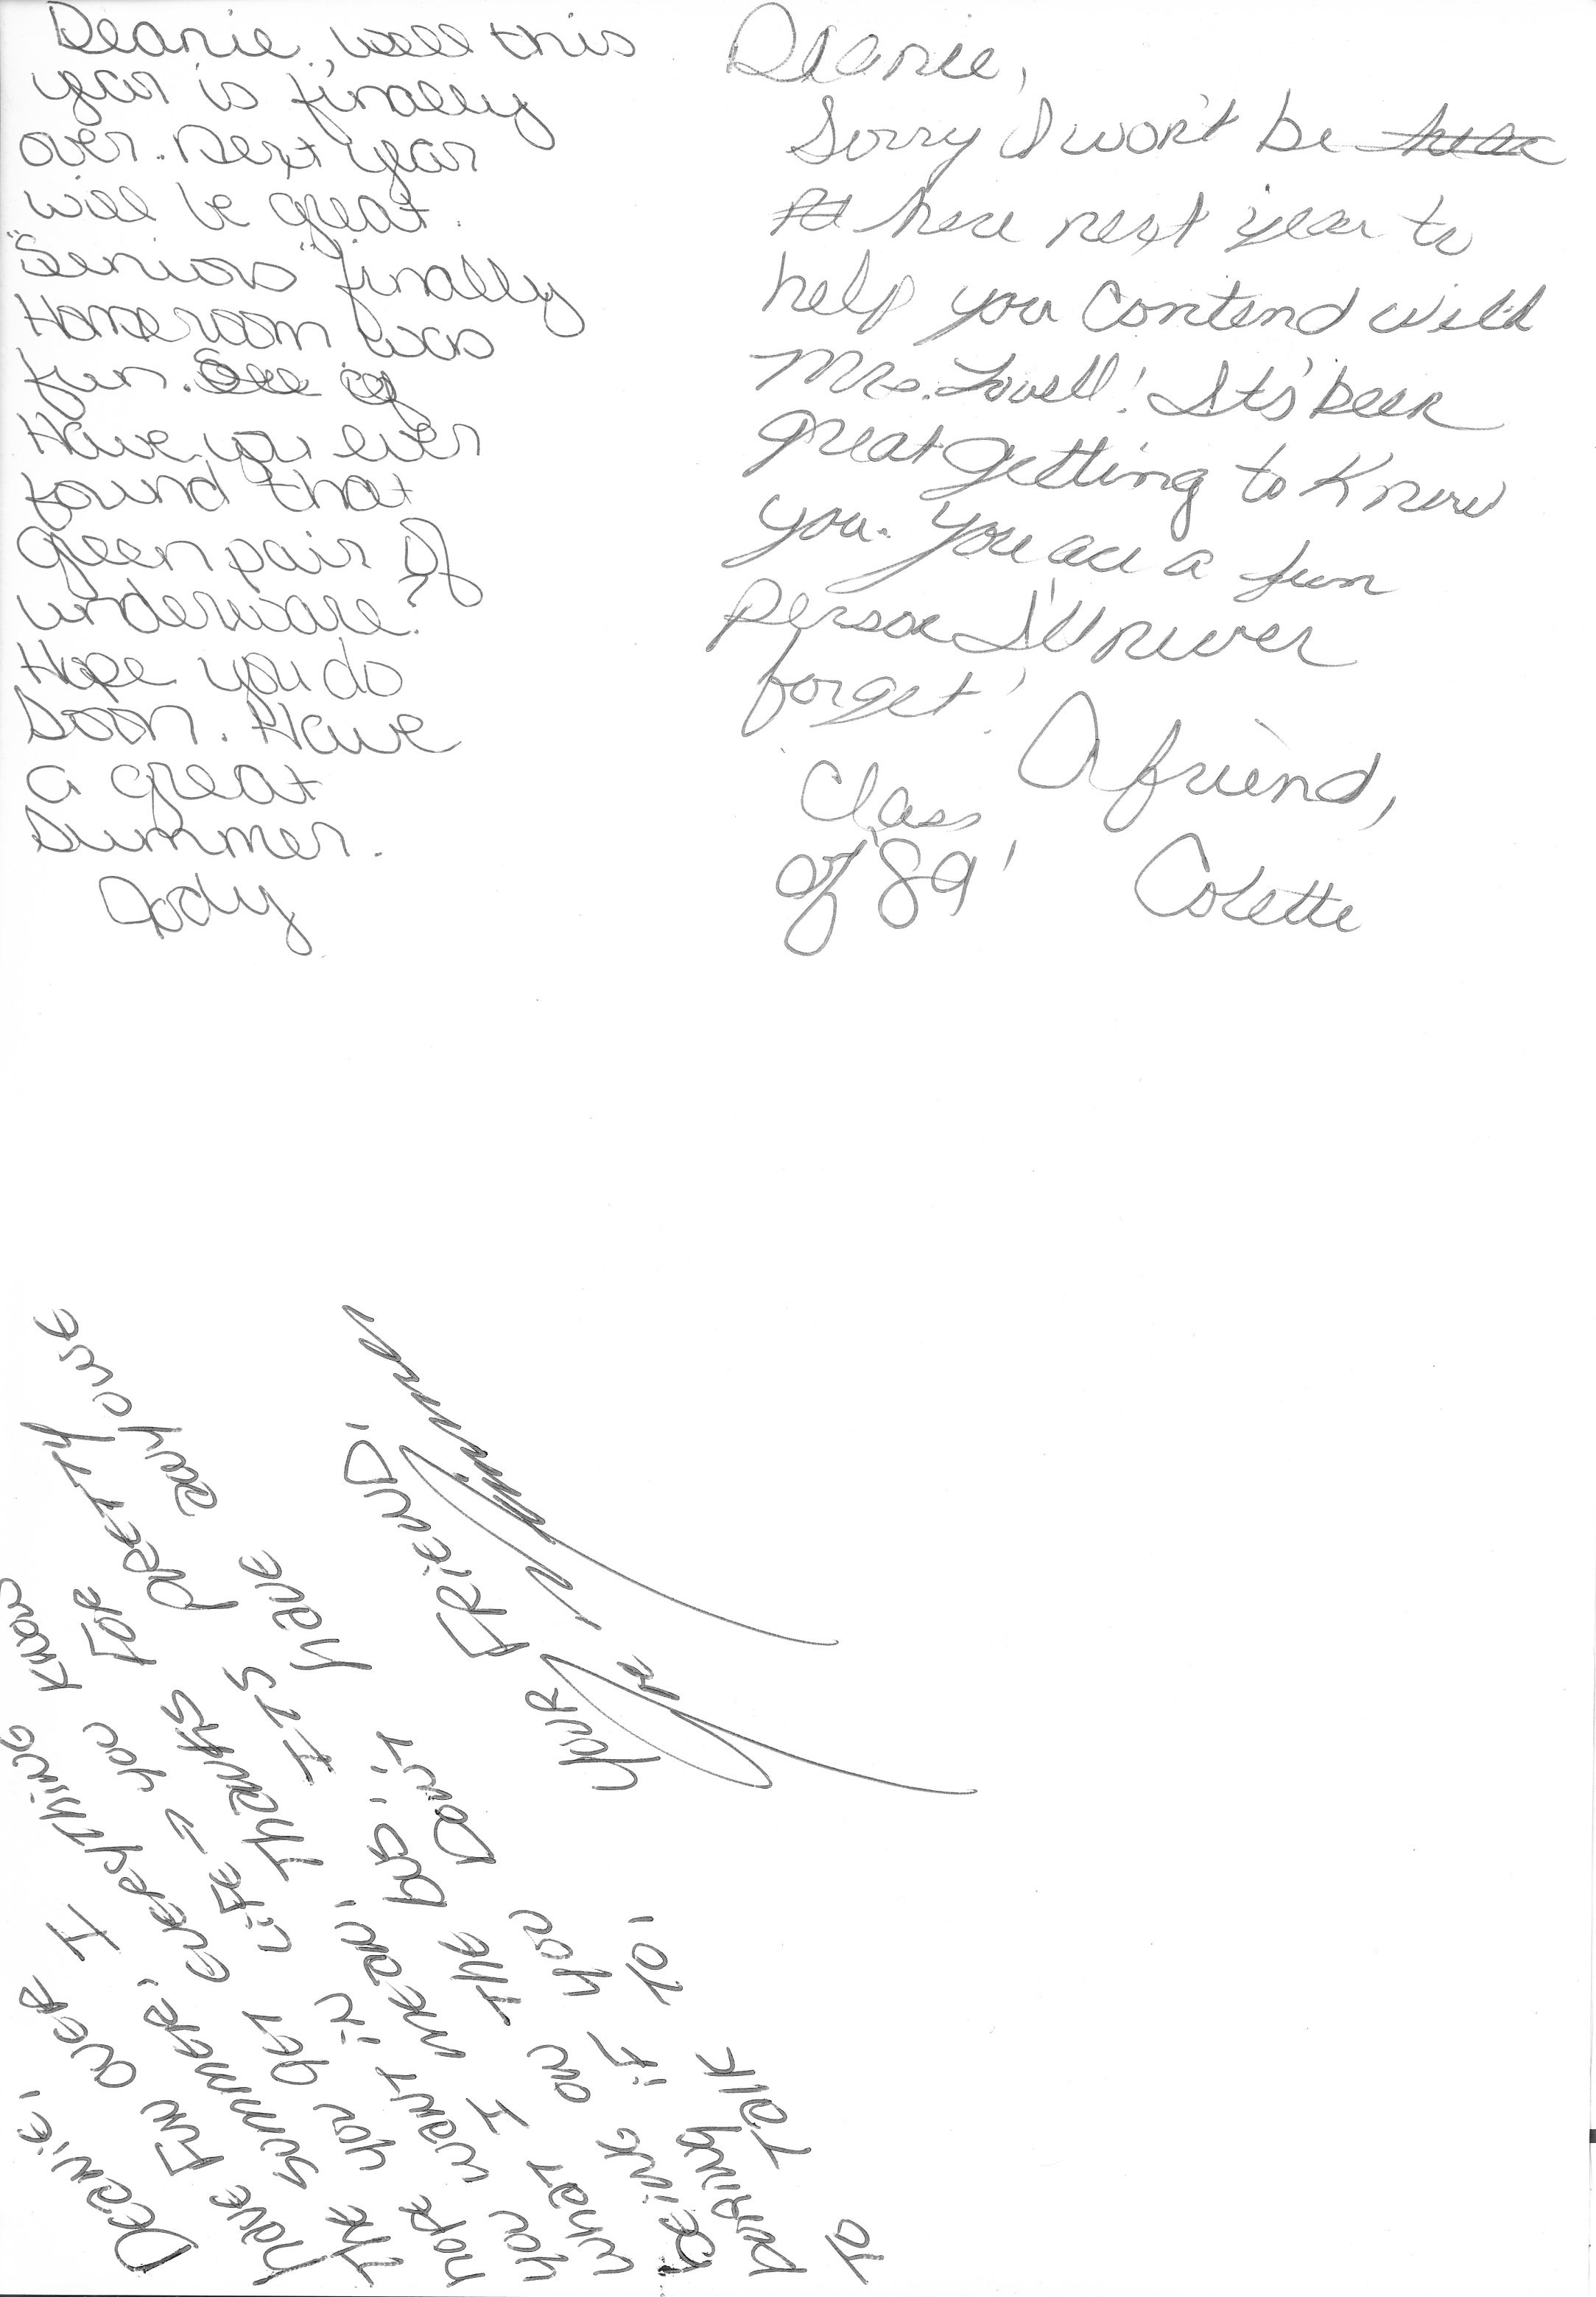 Deanie, well this
year is finally
over. Next year
will be great.
"Seniors" finally
Homeroom was
fun.
Have you ever
found that
green pair of
underware?
Hope you do
soon. Have
a great
summer.
Jody
Deanie,
Sorry I won't be
here next year to
help you contend with
Mrs. Lovell! It's been
great getting to know
you. You are a fun
person I'll never
forget!
A friend,
Class
of '89'
Colette
Deanie,
have Fun over
The summer, I
hope you get everything
you want in life = you know
what I mean, Thanks For
being on The bus, ITS pretty
boring if you Don't have anyone
To Talk To,
Your Friend,